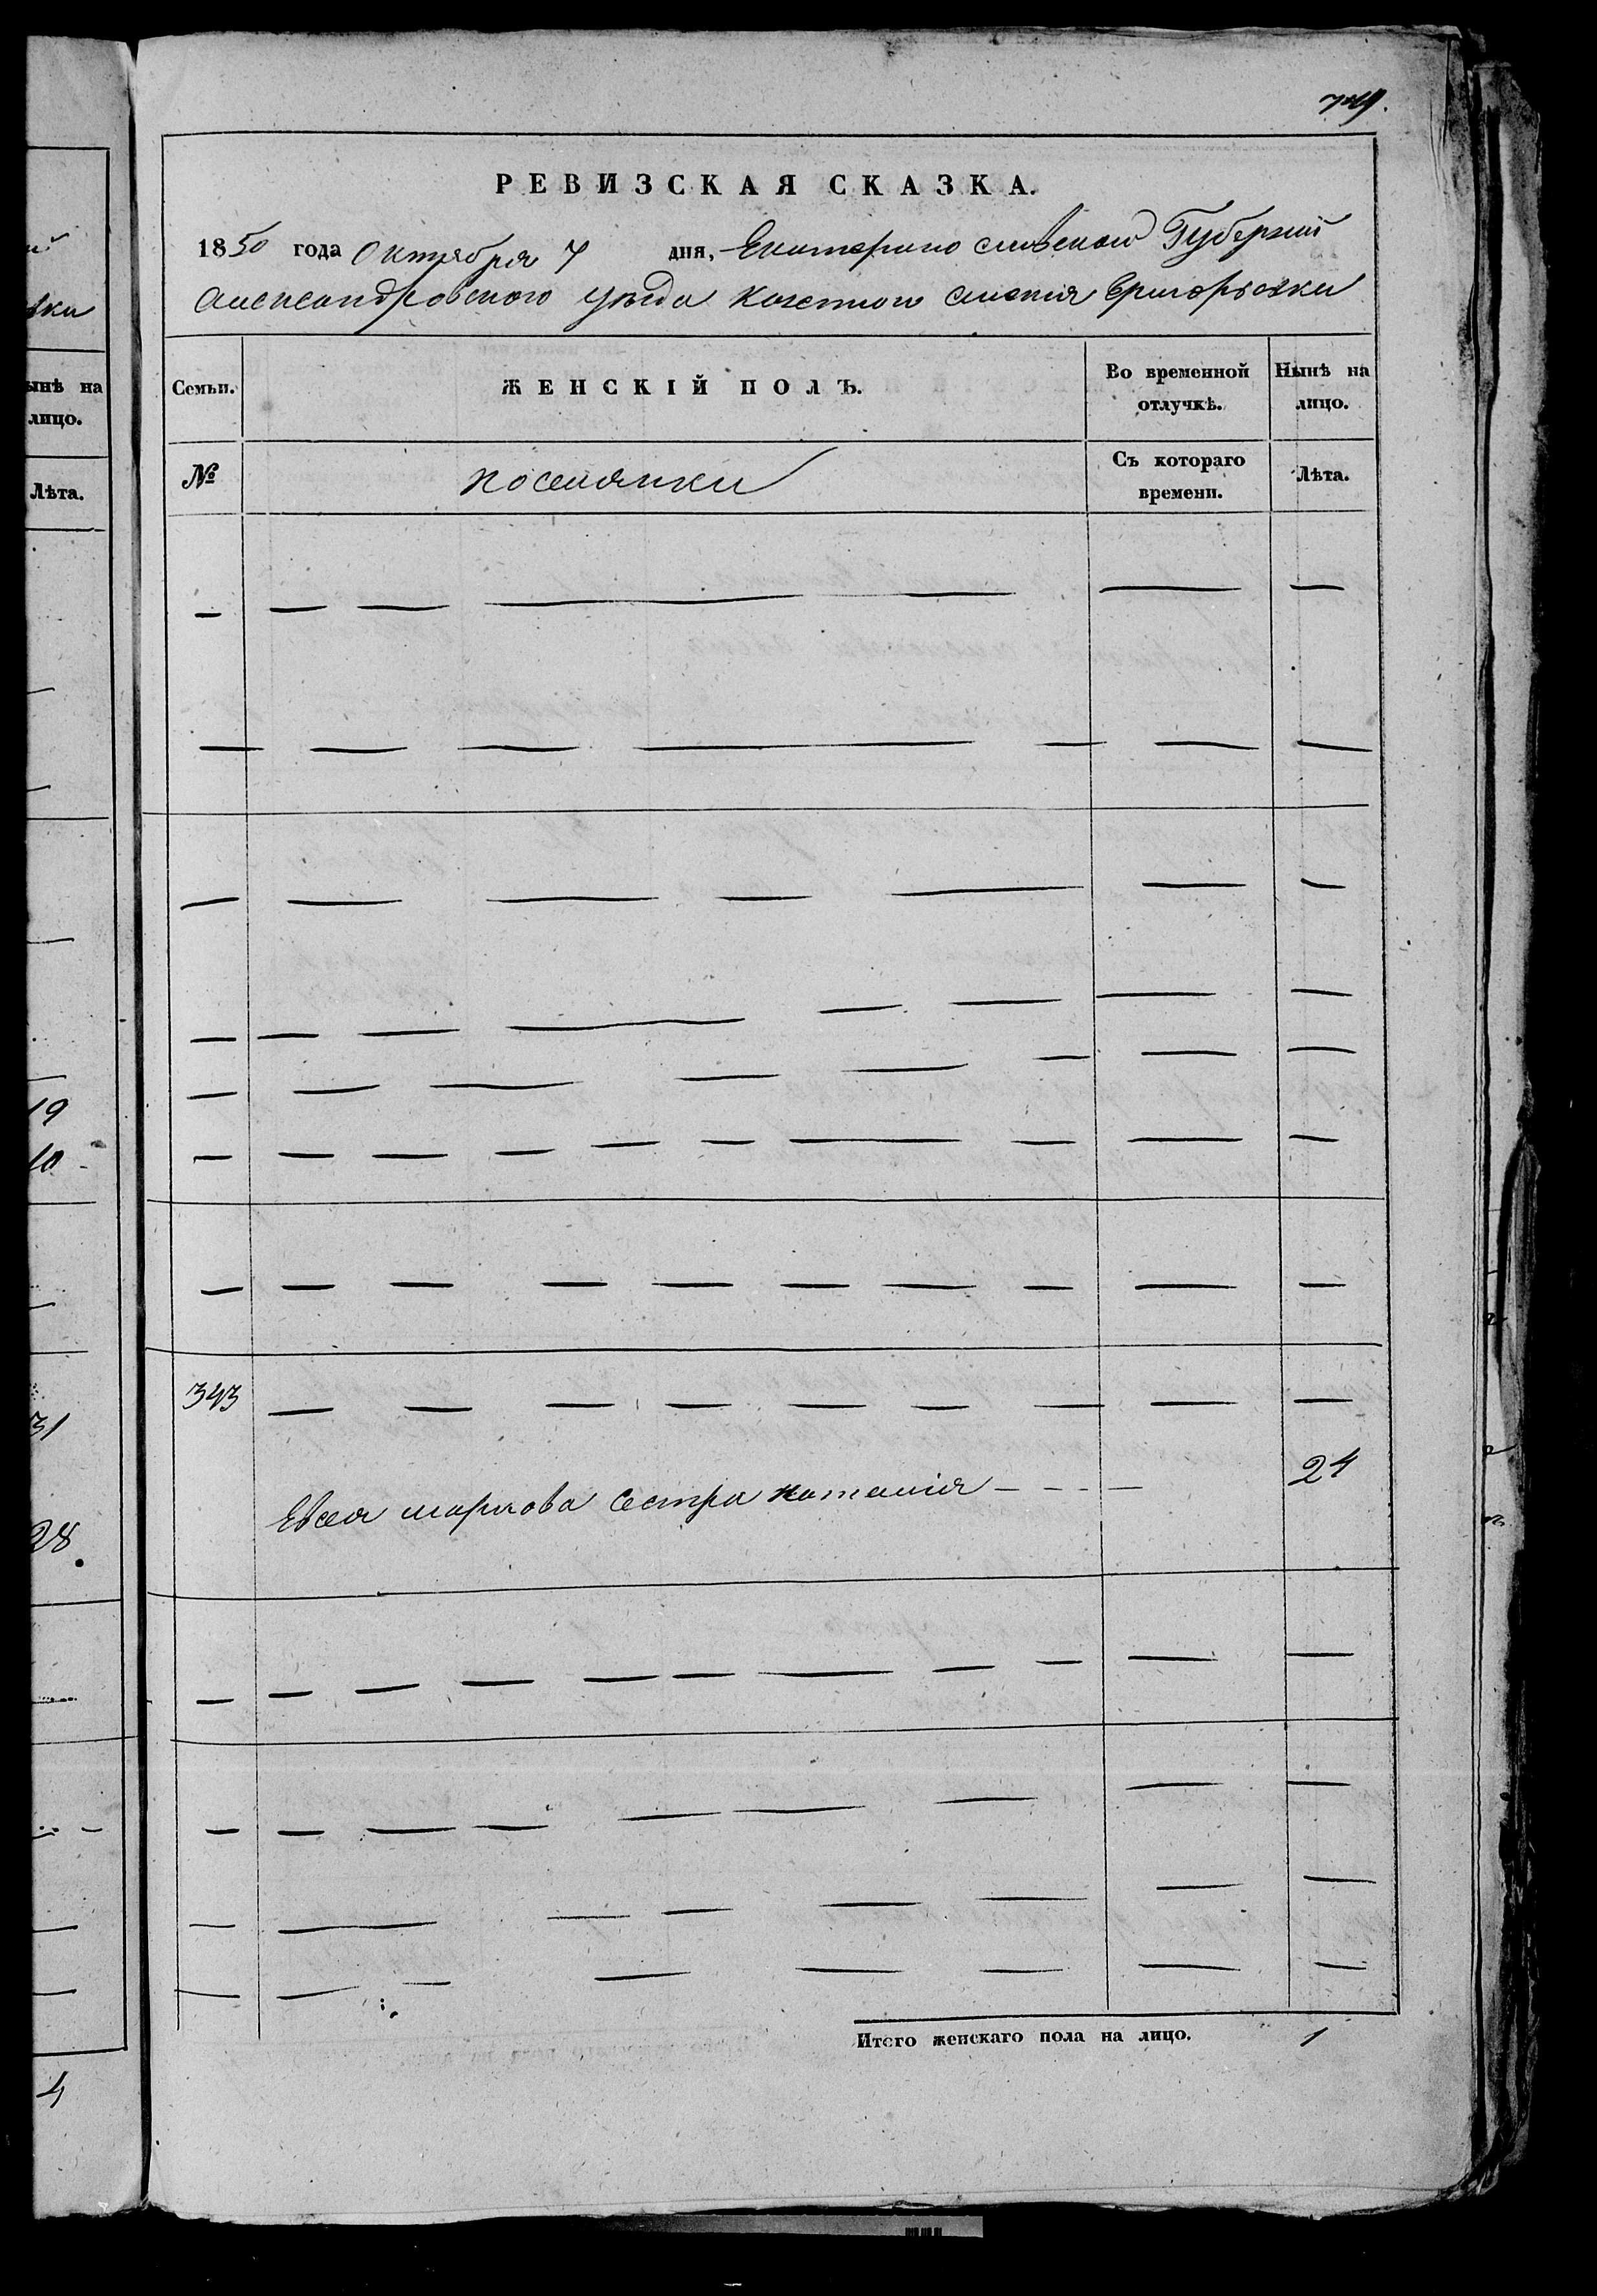 749.
РЕВИЗСКАЯ СКАЗКА.
1850 года Октября 7 дня, Екатеринославской Губернии
Александровского уезда казенного селения Григорьевки
Семьи. ЖЕНСКІЙ ПОЛЪ. Во временной отлучкѣ. Нынѣ на лицо.
№ поселянки Съ котораго времени. Лѣта.
343
Евсея маркова Сестра наталия - - - — 24
Итого женскаго пола на лицо. 1
вки
ынѣ на
лицо.
Лѣта.
19
10
31
28.
4